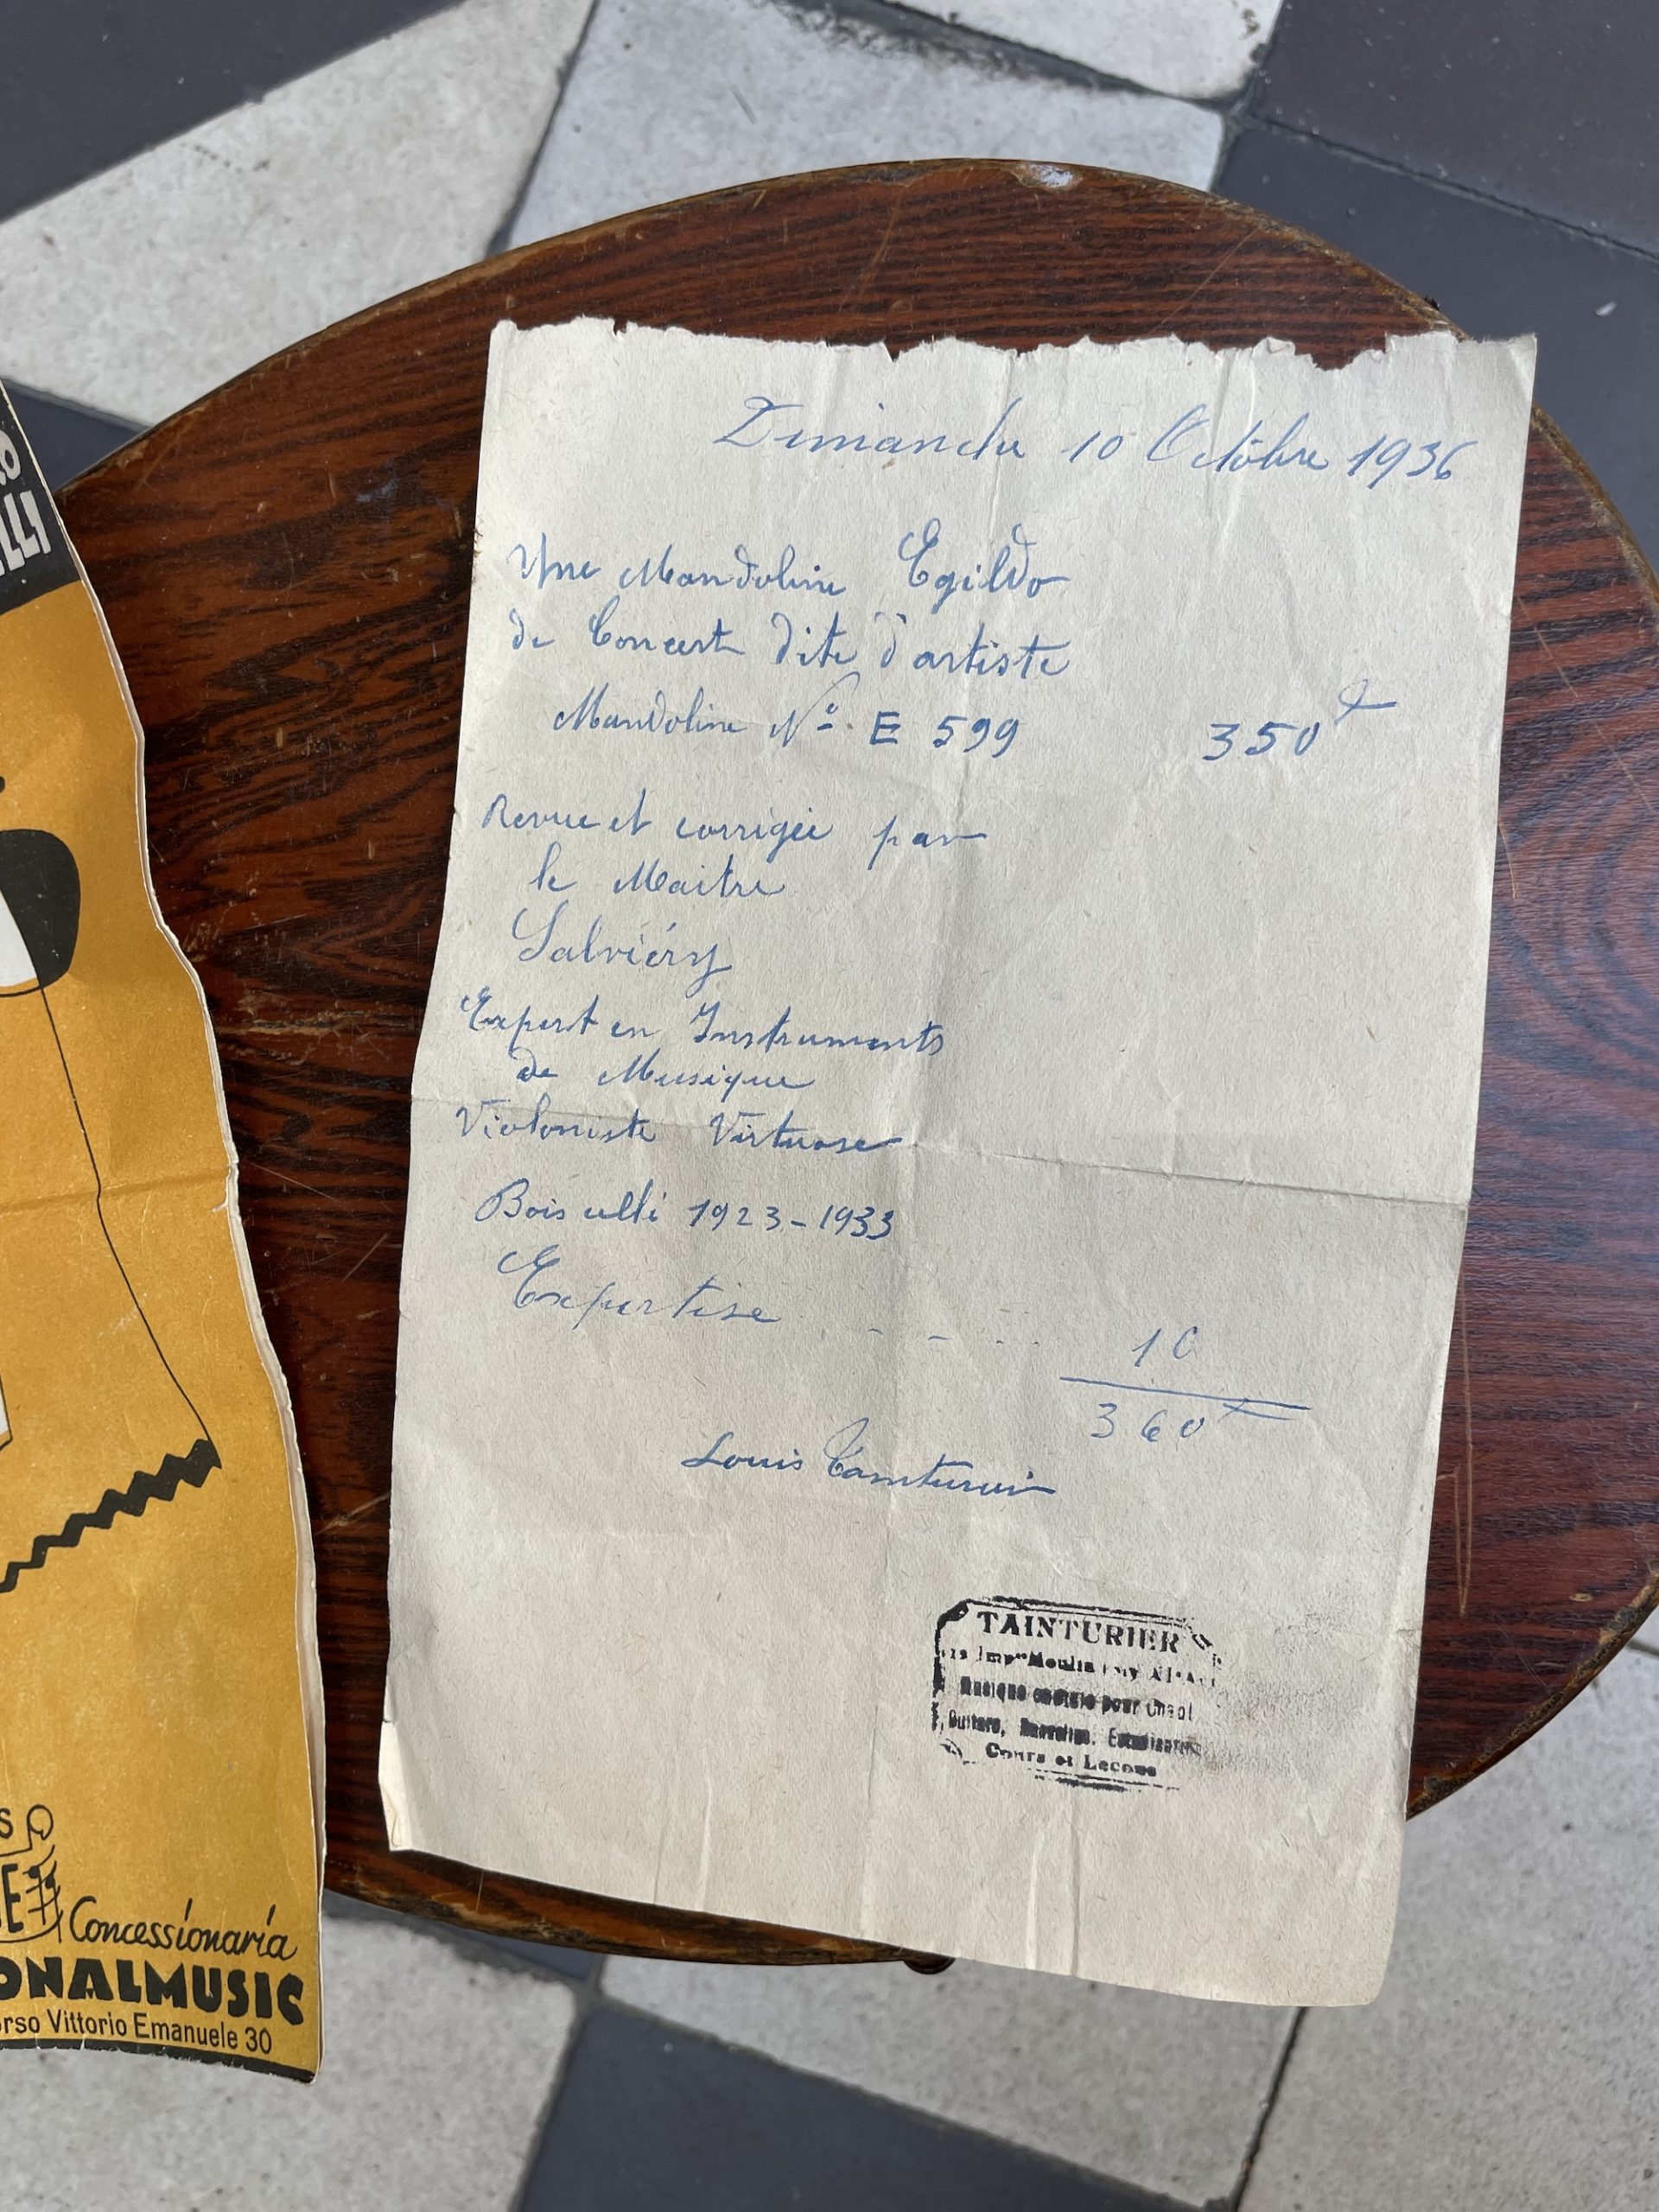 Dimanche 10 Octobre 1936
Une Mandoline Egildo
de Concert dite d'artiste
Mandoline N° E 599 350 F
Revue et corrigée par
le Maitre
Salviéry
Expert en Instruments
de Musique
Violoniste Virtuose
Bois 1923-1933
Expertise - - - - 10
360 F
Louis Tainturier
TAINTURIER
Moulin
Musique pour Chant
Guitare,
Cours et Leçons
Concessionaria
ONALMUSIC
orso Vittorio Emanuele 30